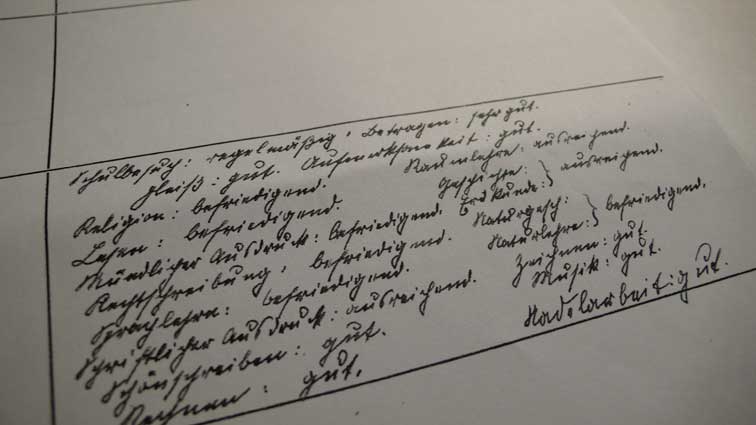 Schulbesuch: regelmäßig, Betragen: sehr gut.
Fleiß: gut. Aufmerksamkeit: gut.
Religion: befriedigend.
Lesen: befriedigend.
Mündlicher Ausdruck: befriedigend.
Rechtschreibung: befriedigend.
Sprachlehre: befriedigend.
Schriftlicher Ausdruck: ausreichend.
Schönschreiben: gut.
Rechnen: gut.
Raumlehre: ausreichend.
Geschichte: } ausreichend.
Erdkunde: }
Naturgesch: } befriedigend.
Naturlehre: }
Zeichnen: gut.
Musik: gut.
Nadelarbeit: gut.